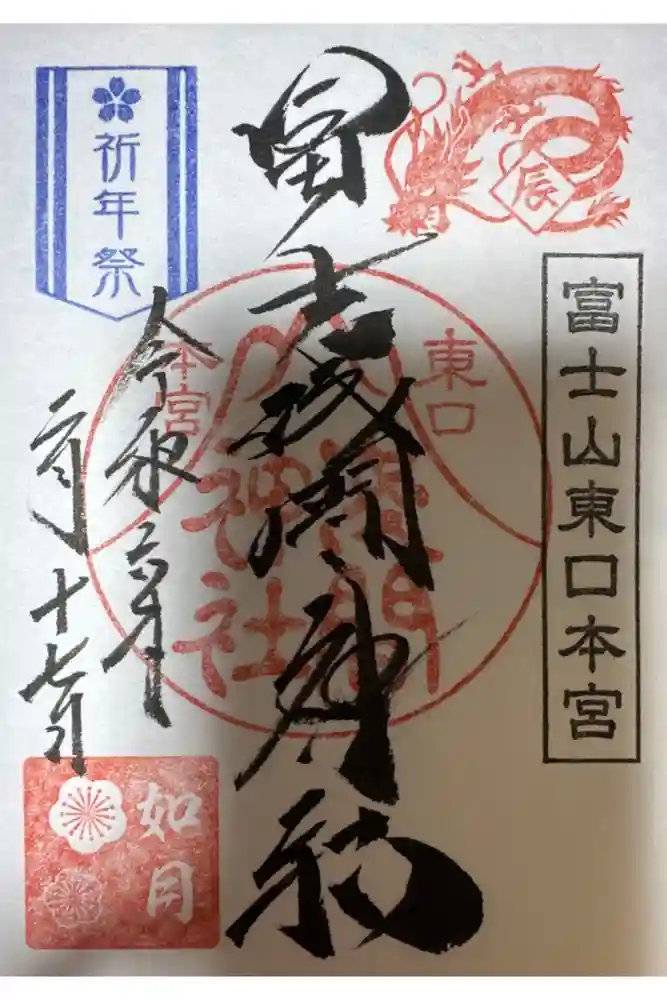 辰
富士山東口本宮
冨士浅間神社
東口
本宮
淺間
神社
祈年祭
令和六年
二月十七日
如月